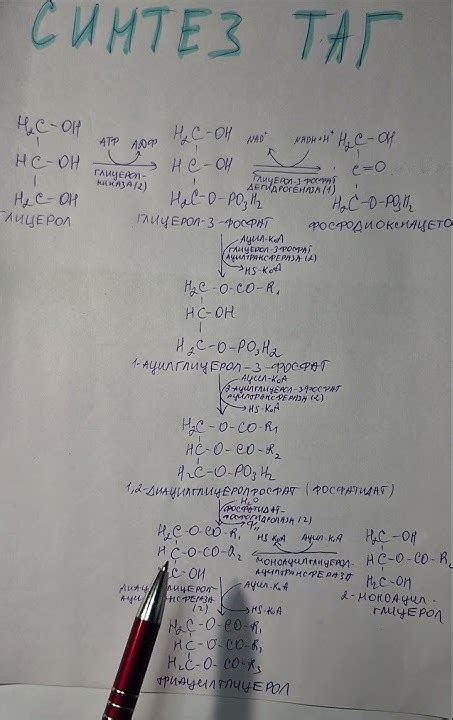 СИНТЕЗ ТАГ
H₂C-OH
HC-OH
H₂C=OH
ГЛИЦЕРОЛ
АТР АДФ
ГЛИЦЕРОЛ-
КИНАЗА(2)
H₂C-OH
HC-OH
H₂C-O-PO₃H₂
ГЛИЦЕРОЛ-3-ФОСФАТ
NAD⁺ NADH+H⁺
ГЛИЦЕРОЛ-3-ФОСФАТ
ДЕГИДРОГЕНАЗА(1)
H₂C-OH
C=O
H₂C-O-PO₃H₂
ФОСФОДИОКСИАЦЕТО
АЦИЛ-КоА
ГЛИЦЕРОЛ-3-ФОСФАТ
АЦИЛТРАНСФЕРАЗА(2)
HS-КоА
H₂C-O-CO-R₁
HC-OH
H₂C-O-PO₃H₂
1-АЦИЛГЛИЦЕРОЛ-3-ФОСФАТ
АЦИЛ-КоА
АЦИЛТРАНСФЕРАЗА(2)
HS-КоА
H₂C-O-CO-R₁
HC-O-CO-R₂
H₂C-O-PO₃H₂
1,2-ДИАЦИЛГЛИЦЕРОЛФОСФАТ (ФОСФАТИДАТ)
H₂O
ФОСФАТИДАТ-
ФОСФОГИДРОЛАЗА(2)
H₂C-O-CO-R₁
HC-O-CO-R₂
C-OH
HS КоА АЦИЛ-КоА
МОНОАЦИЛГЛИЦЕРОЛ-
АЦИЛТРАНСФЕРАЗА
H₂C-OH
HC-O-CO-R₂
H₂C-OH
2-МОНОАЦИЛ-
ГЛИЦЕРОЛ
(2)
АЦИЛ-КоА
HS-КоА
H₂C-O-CO-R₁
HC-O-CO-R₂
H₂C-O-CO-R₃
ТРИАЦИЛГЛИЦЕРОЛ